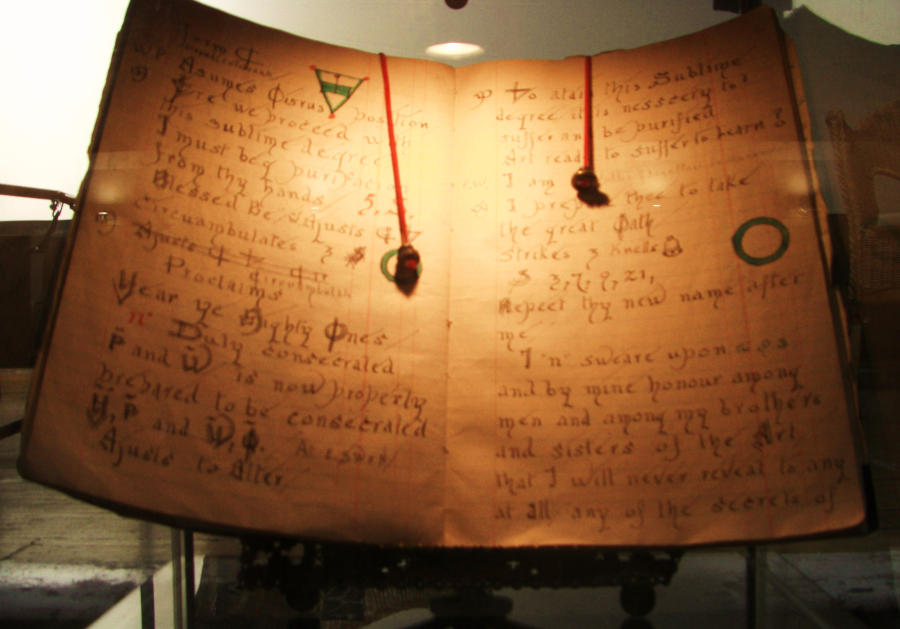 Form
Asumes Osirus position
Ere we proceed with
this sublime degree
I must beg purifacation
from thy hands
Blessed Be & Ajusts
Circuambulates
Ajusts
Proclaims
Hear ye Mighty Ones
n Duly consecrated
P and W is now properly
prepared to be consecrated
H, P and W, O.
Ajusts to Alter
To atain this Sublime
degree it is nessecery to
suffer and be purified
Art ready to suffer to Learn
I am
I prepare thee to take
the great Oath
Strikes 3 Knells
3, 7, 9, 21,
Repeat thy new name after
me
I "n" sweare upon
and by mine honour among
men and among my brothers
and sisters of the Art
that I will never reveal to any
at all any of the secrets of